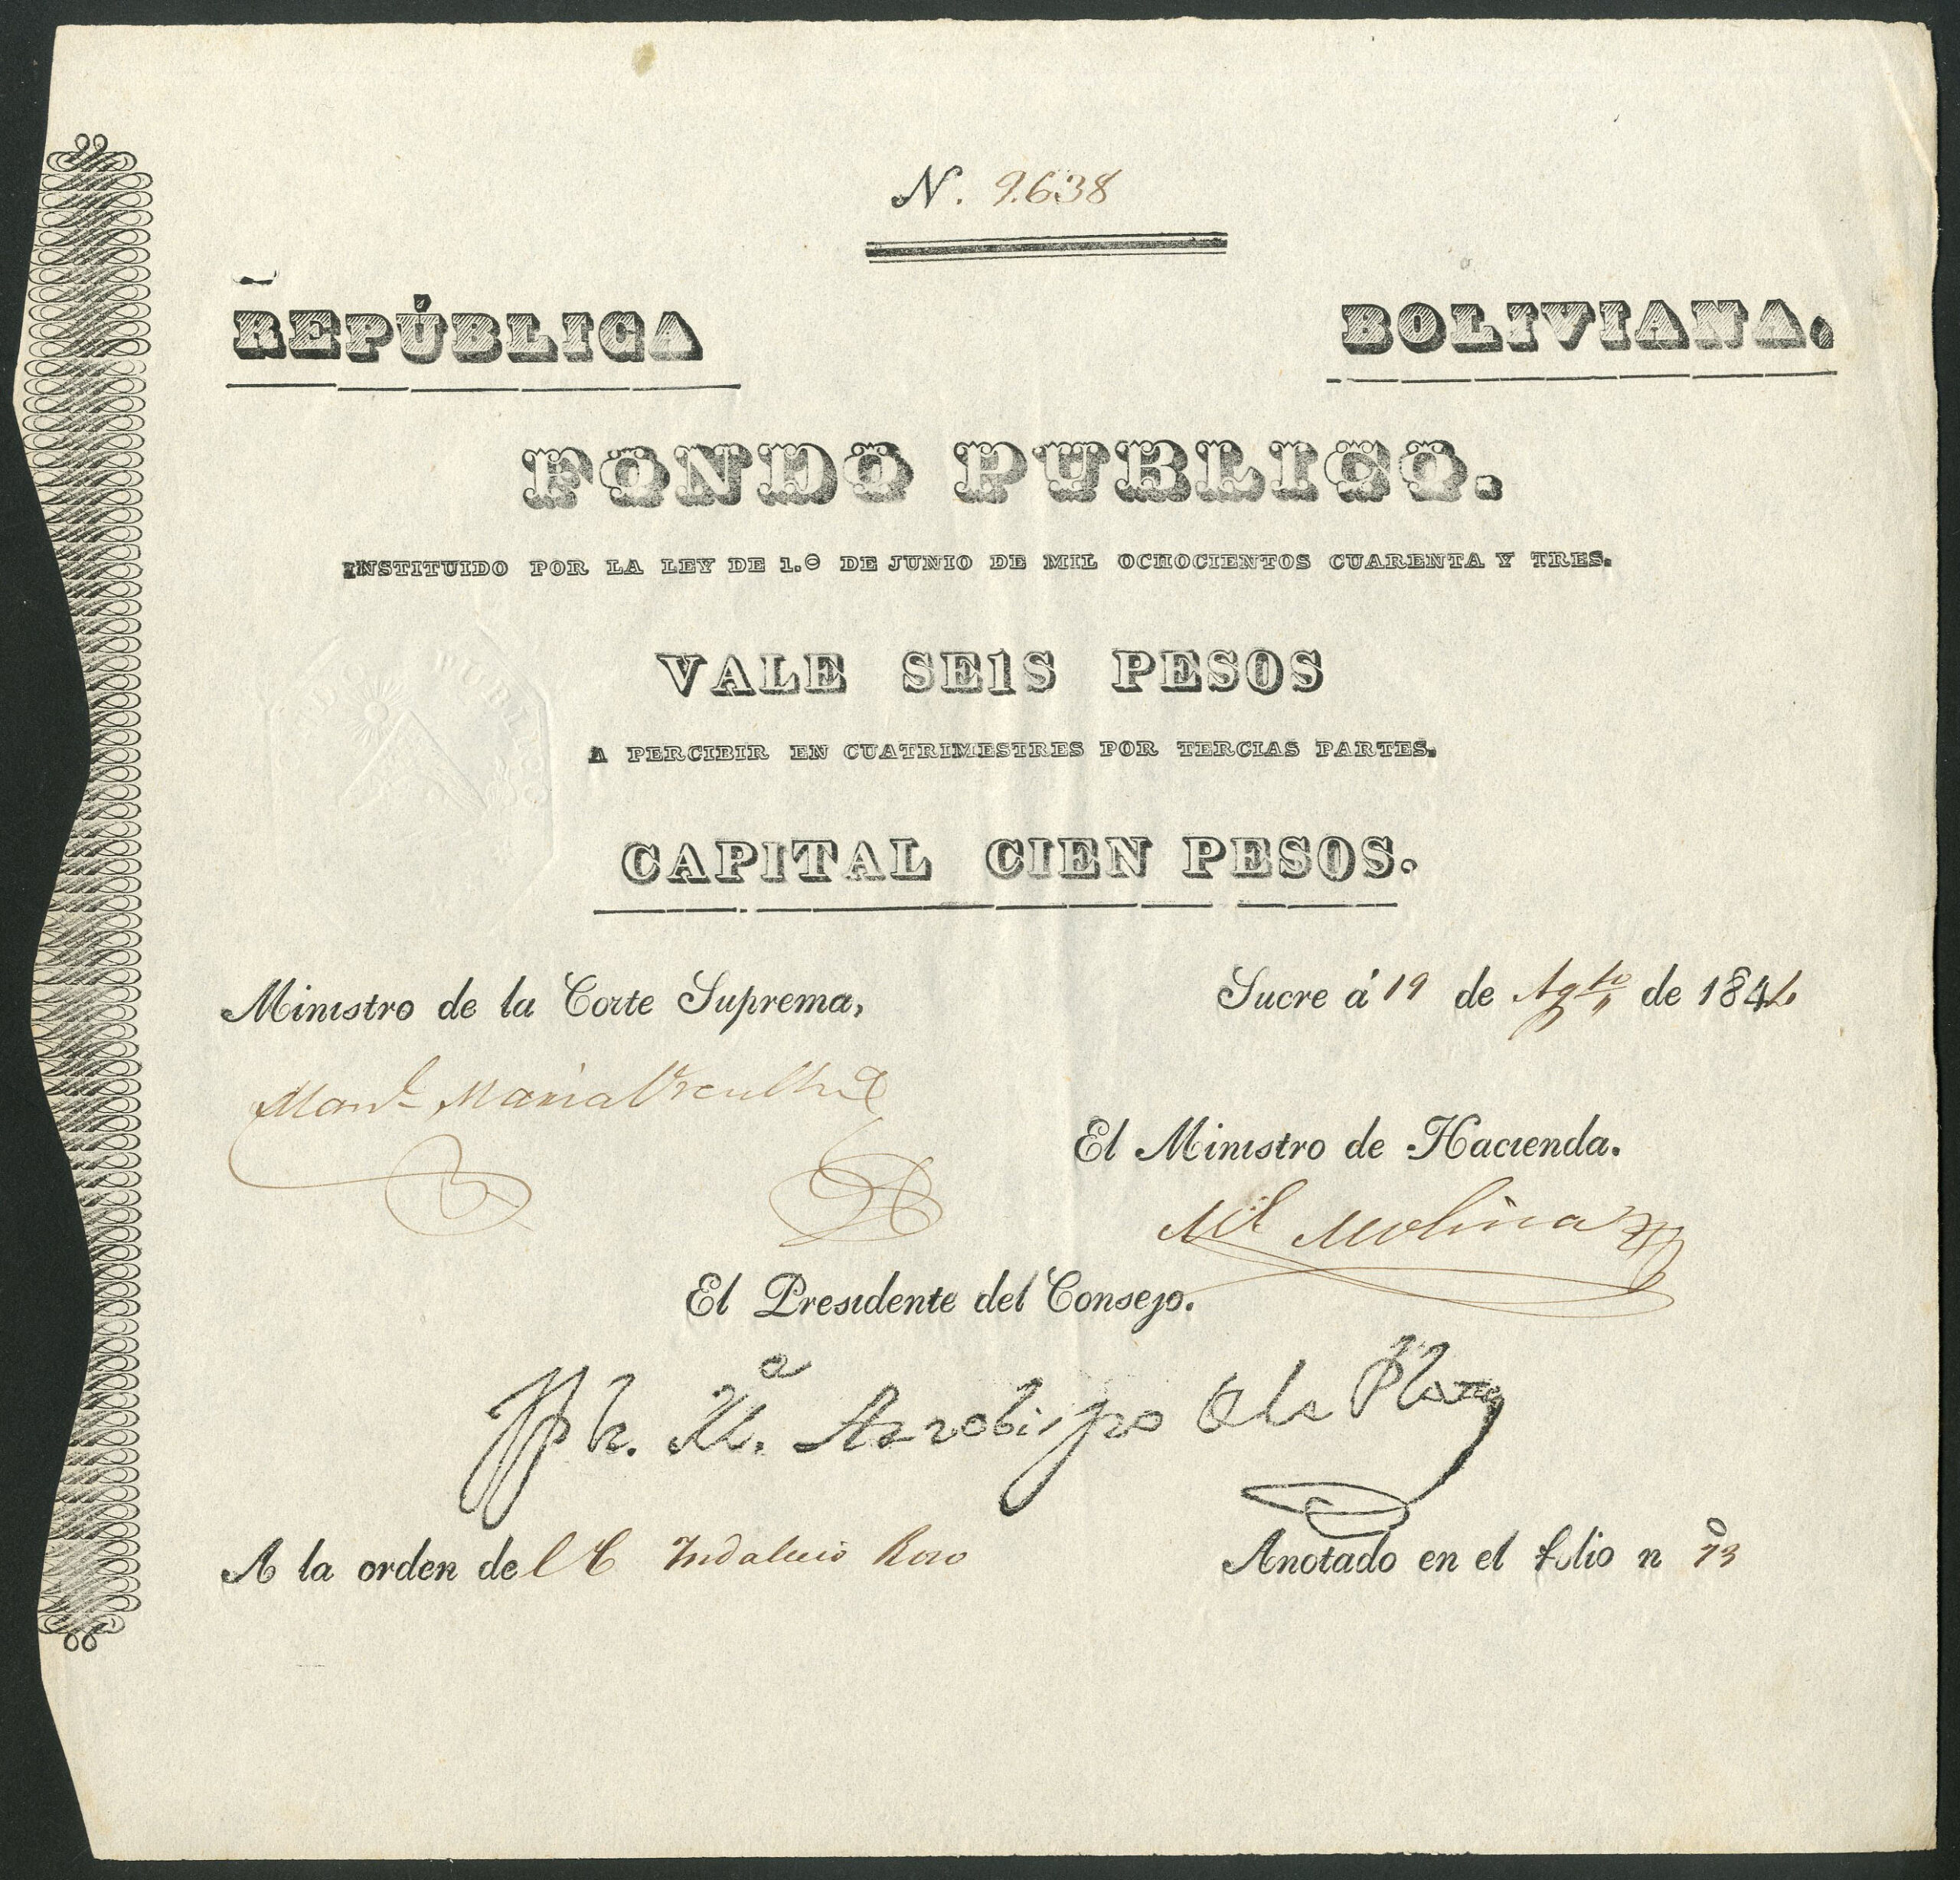 N. 9.638
REPÚBLICA BOLIVIANA.
FONDO PUBLICO.
INSTITUIDO POR LA LEY DE 1.º DE JUNIO DE MIL OCHOCIENTOS CUARENTA Y TRES.
VALE SEIS PESOS
A PERCIBIR EN CUATRIMESTRES POR TERCIAS PARTES.
CAPITAL CIEN PESOS.
Ministro de la Corte Suprema,
Sucre á 19 de Agto de 1844
Manl Maria
El Ministro de Hacienda.
Ml Molina
El Presidente del Consejo.
Jph. Ma. Arzobispo de la Plata
A la orden del C Indalecio Roso
Anotado en el folio nº 73